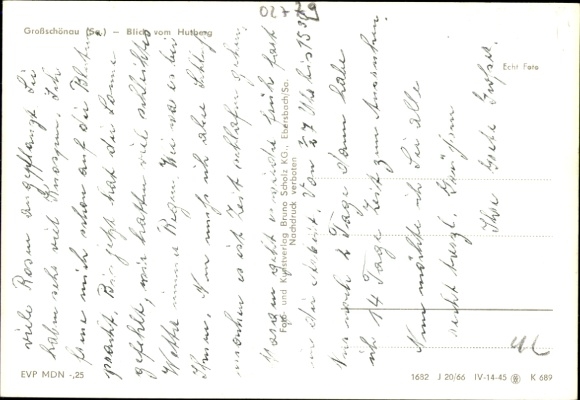 027
Großschönau (Sa.) – Blick vom Hutberg
Echt Foto
viele Rosen angepflanzt. Sie
haben sehr viel Knospen. Ich
freue mich schon auf die Blüten
pracht. Bis jetzt hat die Sonne
gefehlt, wir hatten viel schlechtes
Wetter immer Regen. Wie war es bei
Ihnen. Nun muß ich aber Schluß
machen es ist Zeit schlafen gehen
morgen geht es wieder früh fort
in die Arbeit. Von 27 bis 15
Nur noch 2 Tage dann habe
ich 14 Tage Zeit zum Ausruhen.
Nun möchte ich Sie alle
recht herzl. Grüßen
Ihre Grete
Foto- und Kunstverlag Bruno Scholz KG., Ebersbach/Sa.
Nachdruck verboten
EVP MDN -,25
1682 J 20/66 IV-14-45 K 689